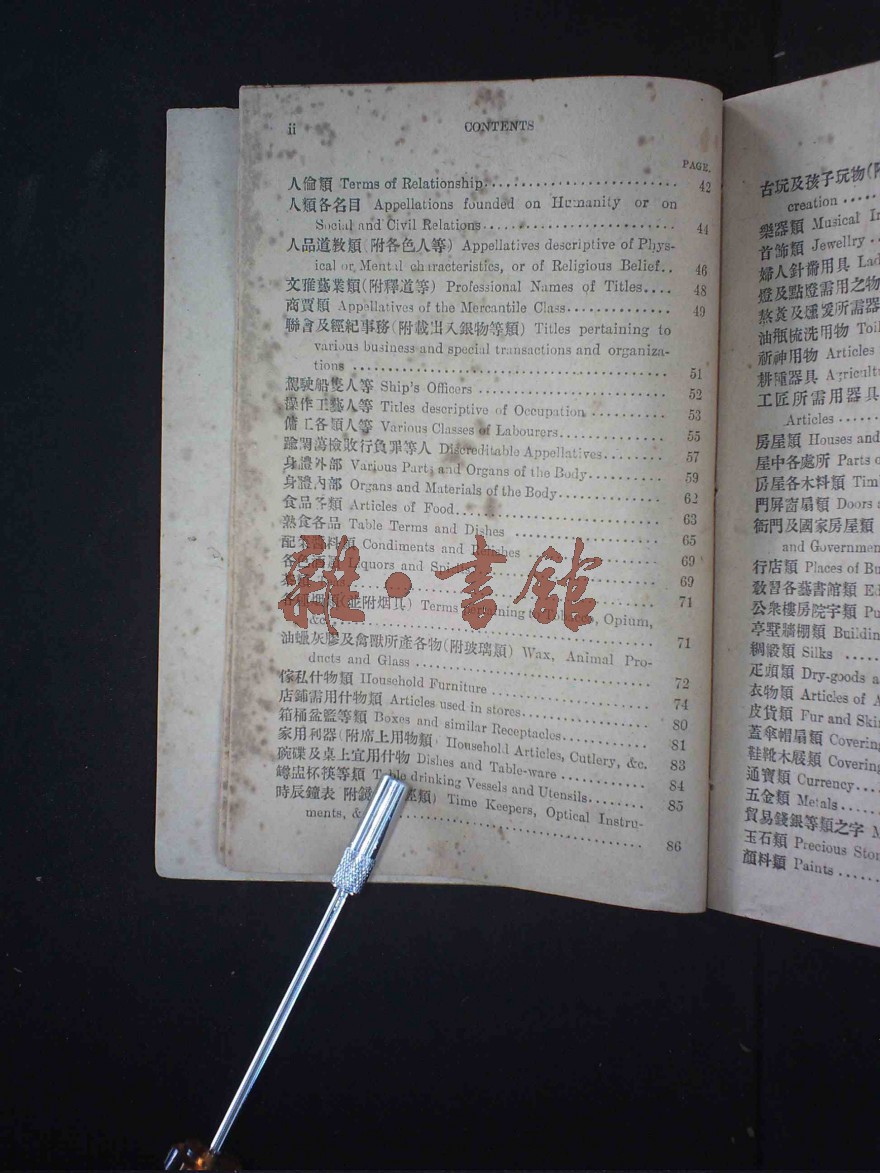 ii CONTENTS
PAGE.
人倫類 Terms of Relationship 42
人類各名目 Appellations founded on Humanity or on
Social and Civil Relations 44
人品道教類(附各色人等) Appellatives descriptive of Phys-
ical or Mental characteristics, or of Religious Belief.. 46
文雅藝業類(附釋道等) Professional Names of Titles.... 48
商賈類 Appellatives of the Mercantile Class 49
聯會及經紀事務(附載出入銀物等類) Titles pertaining to
various business and special transactions and organiza-
tions 51
駕駛船隻人等 Ship's Officers 52
操作工藝人等 Titles descriptive of Occupation 53
傭工各類人等 Various Classes of Labourers 55
踰閑蕩檢敗行負罪等人 Discreditable Appellatives 57
身體外部 Various Parts and Organs of the Body 59
身體內部 Organs and Materials of the Body 62
食品各類 Articles of Food 63
熟食各品 Table Terms and Dishes 65
Condiments and Relishes 69
Liquors and 69
雜·書館
71
(並附烟具) Terms pertaining to Tobacco, Opium,
&c. 71
油蠟灰膠及禽獸所產各物(附玻璃類) Wax, Animal Pro-
ducts and Glass 72
傢私什物類 Household Furniture 74
店鋪需用什物類 Articles used in stores 80
箱桶盆籃等類 Boxes and similar Receptacles 81
家用利器(附席上用物類) Household Articles, Cutlery, &c. 83
碗碟及桌上宜用什物 Dishes and Table-ware 84
罇盅杯筷等類 Table drinking Vessels and Utensils 85
時辰鐘表 類) Time Keepers, Optical Instru-
ments, & 86
古玩及孩子玩物(附
creation
樂器類 Musical In
首飾類 Jewellry
婦人針黹用具 Lad
燈及點燈需用之物
油瓶梳洗用物 Toil
祈神用物 Articles
耕種器具 Agricultu
工匠所需用器具
Articles
房屋類 Houses and
屋中各處所 Parts o
房屋各木料類 Tim
門屏窗扇類 Doors
衙門及國家房屋類
and Governmen
行店類 Places of Bu
教習各藝書館類 E
公衆樓房院字類 Pu
亭墅牆棚類 Buildin
綢緞類 Silks
疋頭類 Dry-goods a
衣物類 Articles of A
皮貨類 Fur and Skin
蓋傘帽扇類 Covering
鞋靴木屐類 Covering
通寶類 Currency
五金類 Metals
貿易錢銀等類之字 M
玉石類 Precious Ston
顏料類 Paints